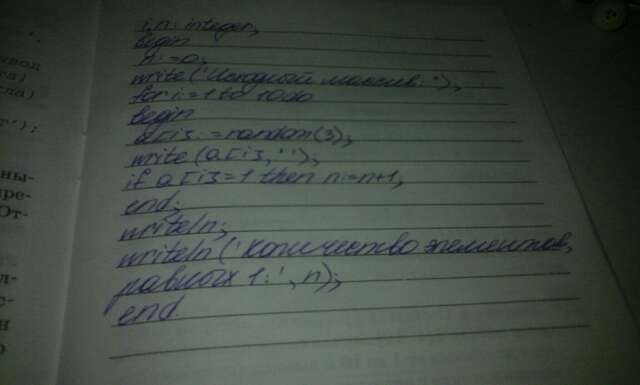 ы-
вол
га)
ла)
т');
ны-
ре-
От-
л-
с-
н
о
i,n: integer;
begin
n:=0;
write('Исходный массив:');
for i:=1 to 10 do
begin
a[i]:=random(3);
write(a[i,' ');
if a[i]=1 then n:=n+1;
end;
writeln;
writeln('Количество элементов,
равных 1:', n);
end